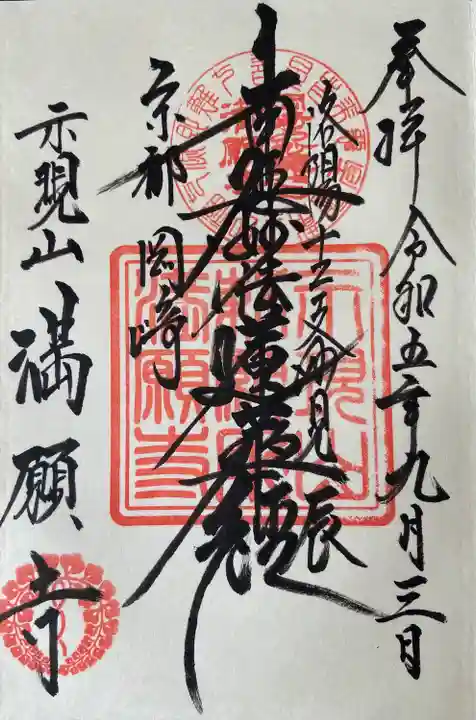 奉拝 令和五年九月三日
洛陽十二支妙見 辰
南無妙法蓮華経
京都 岡崎
示現山 満願寺